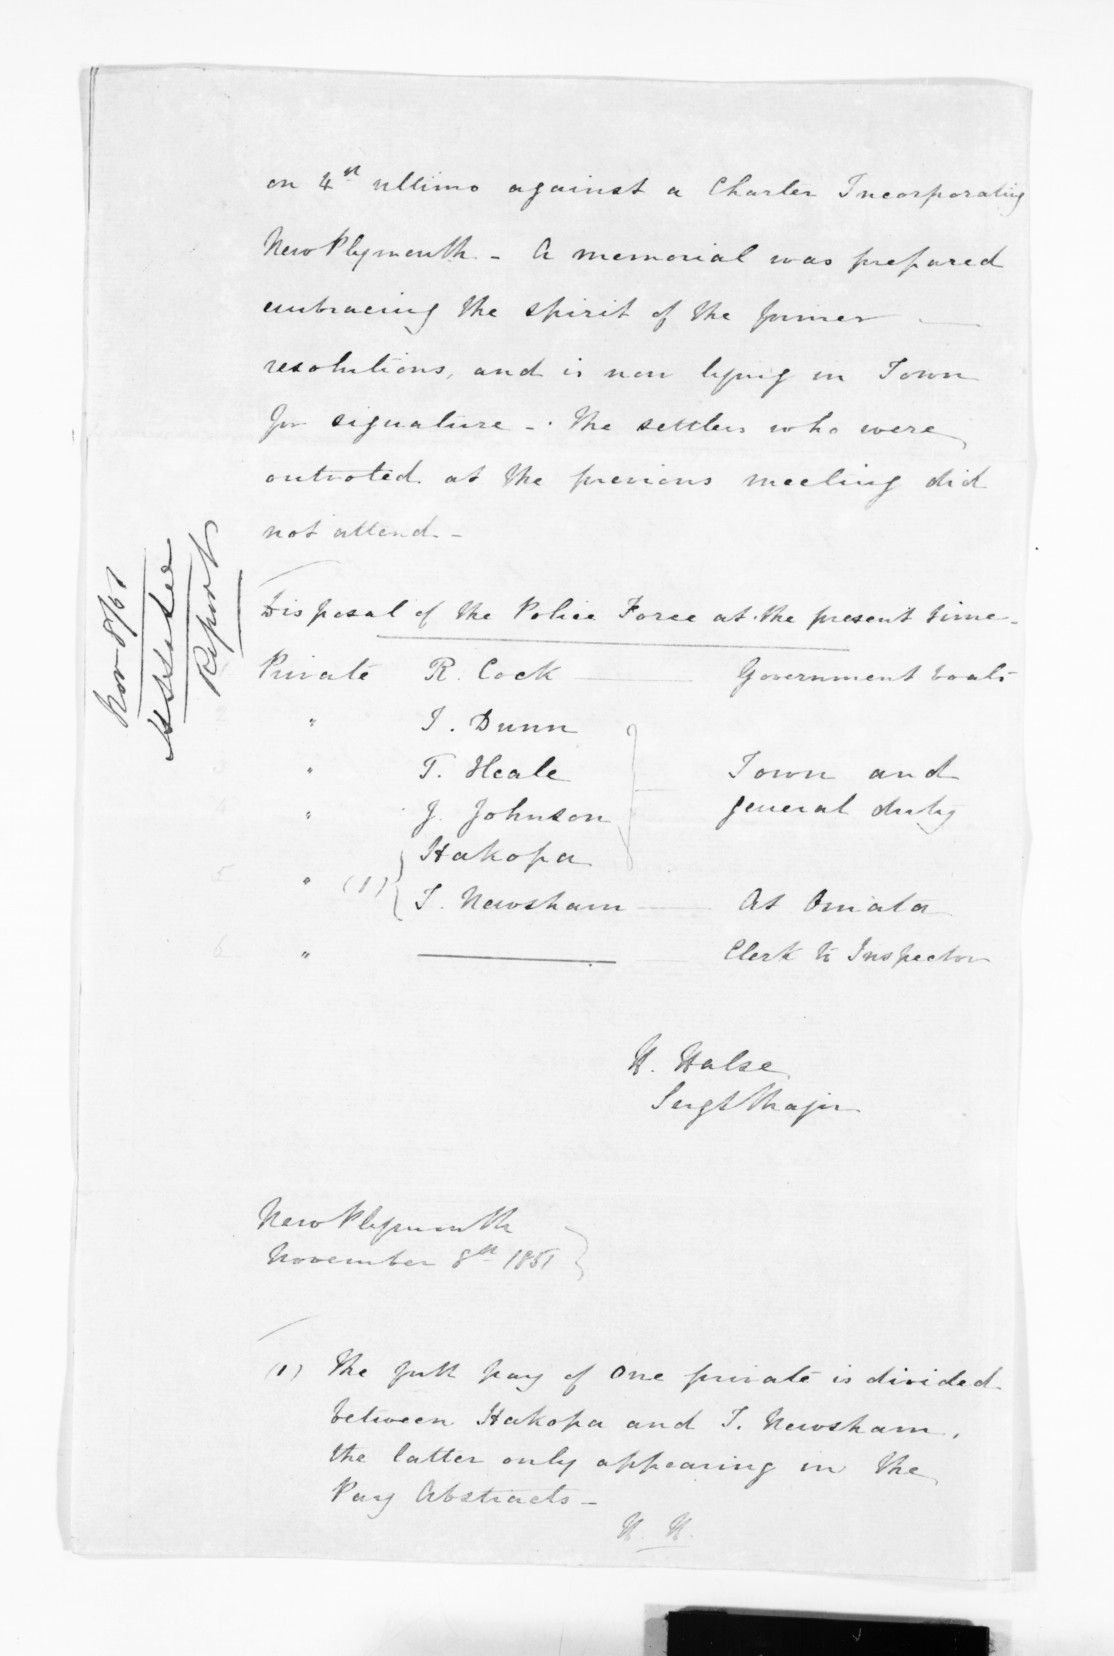 on 4th ultimo against a Charter Incorporating
New Plymouth - A memorial was prepared
embracing the spirit of the former
resolutions, and is now lying in Town
for signature - The settlers who were
outvoted at the previous meeting did
not attend -
Disposal of the Police Force at the present time -
Private R. Cock Government boats
2 " I. Dunn
3 " T. Heale Town and
4 " J. Johnson general duty
Hakopa
5 " (1) T. Newsham At Omata
6 " Clerk to Inspector
H. Halse
Sergt Major
New Plymouth
November 8th 1851
(1) The full pay of one private is divided
between Hakopa and T. Newsham,
the latter only appearing in the
Pay Abstracts -
H. H.
Nov 8/61
Report